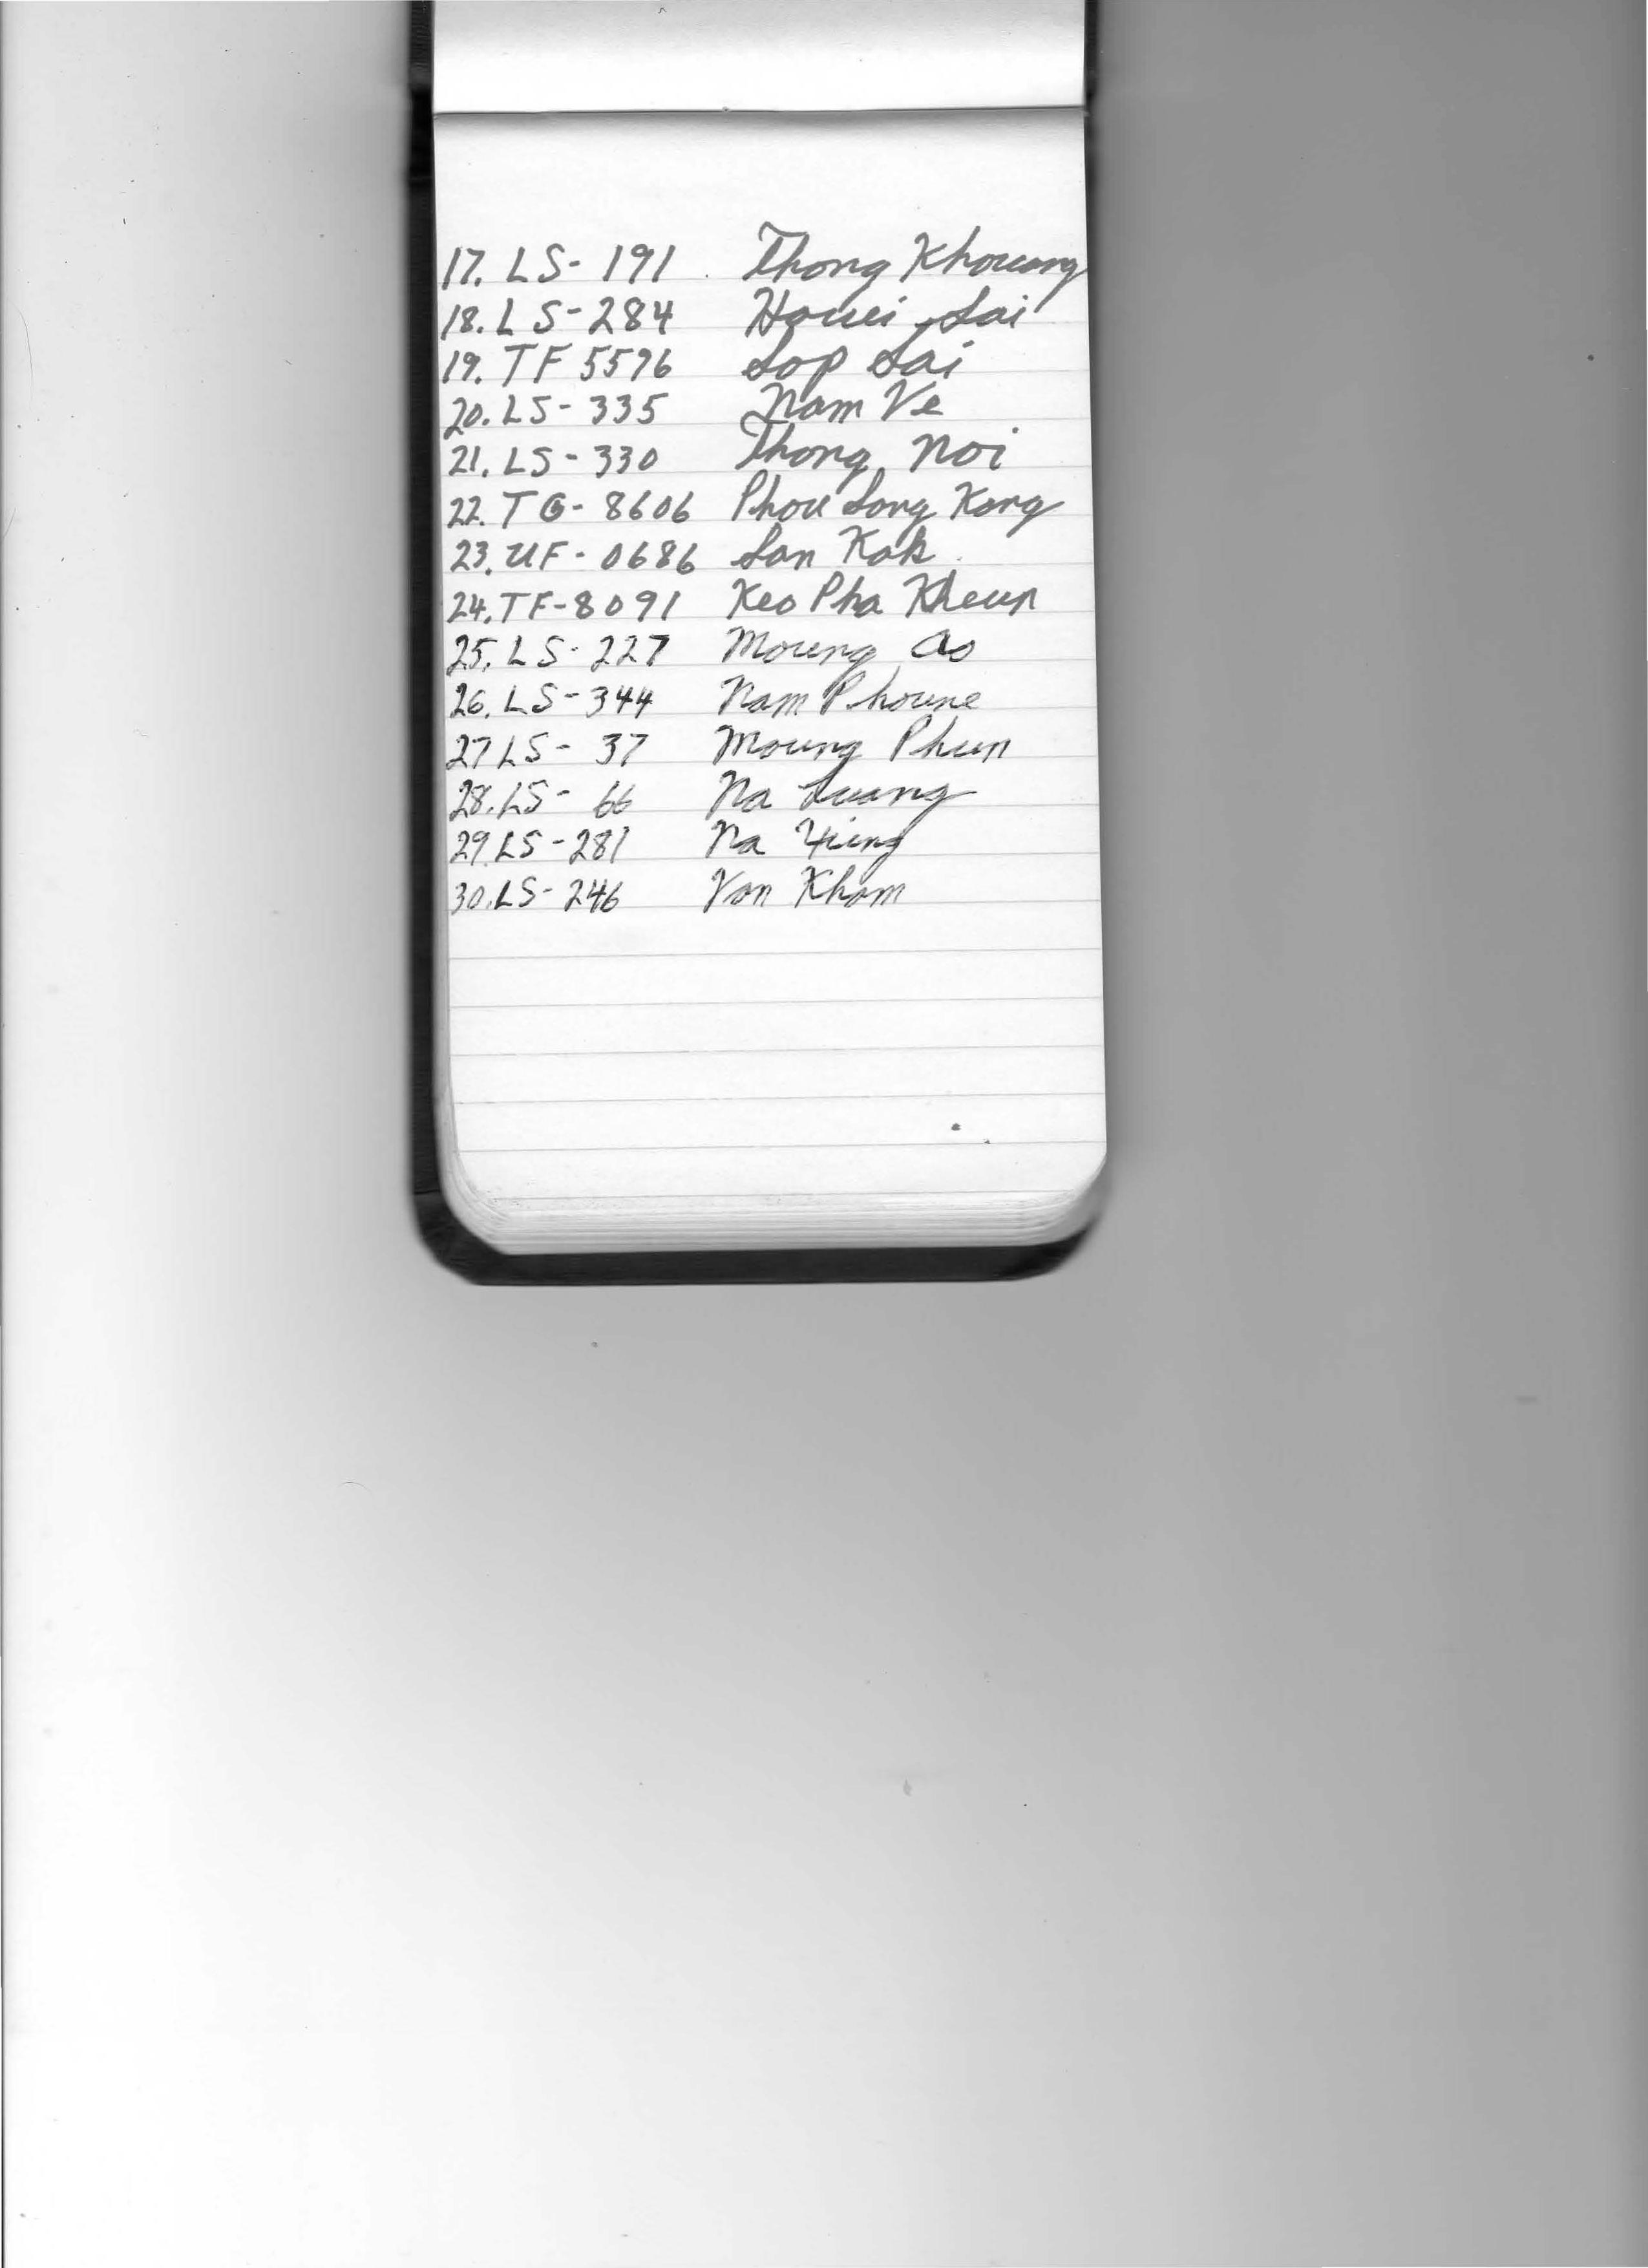 17. LS- 191 Thong Khouang
18. LS-284 Houei Sai
19. TF 5576 Sop Sai
20. LS- 335 Nam Ve
21. LS- 330 Thong Noi
22. TG- 8606 Phou Song Kang
23. UF- 0686 San Kak
24. TF-8091 Keo Pha Kheun
25. LS- 227 Moung Ao
26. LS-344 Nam Phoune
27 LS- 37 Moung Phun
28. LS- 66 Na Luang
29. LS-281 Na Yieng
30. LS- 246 Van Kham